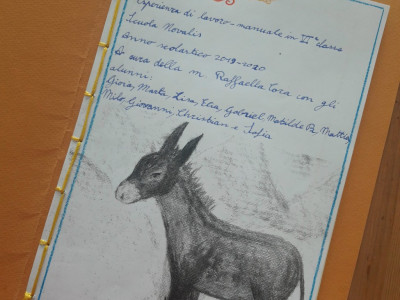 Esperienza di lavoro-manuale in IIª classe
Scuola Novalis
Anno scolastico 2019-2020
A cura della m. Raffaella Cora con gli
alunni:
Gioia, Marta, Lisa, Elia, Gabriel, Matilde Pz, Mattia,
Milo, Giovanni, Christian e Sofia